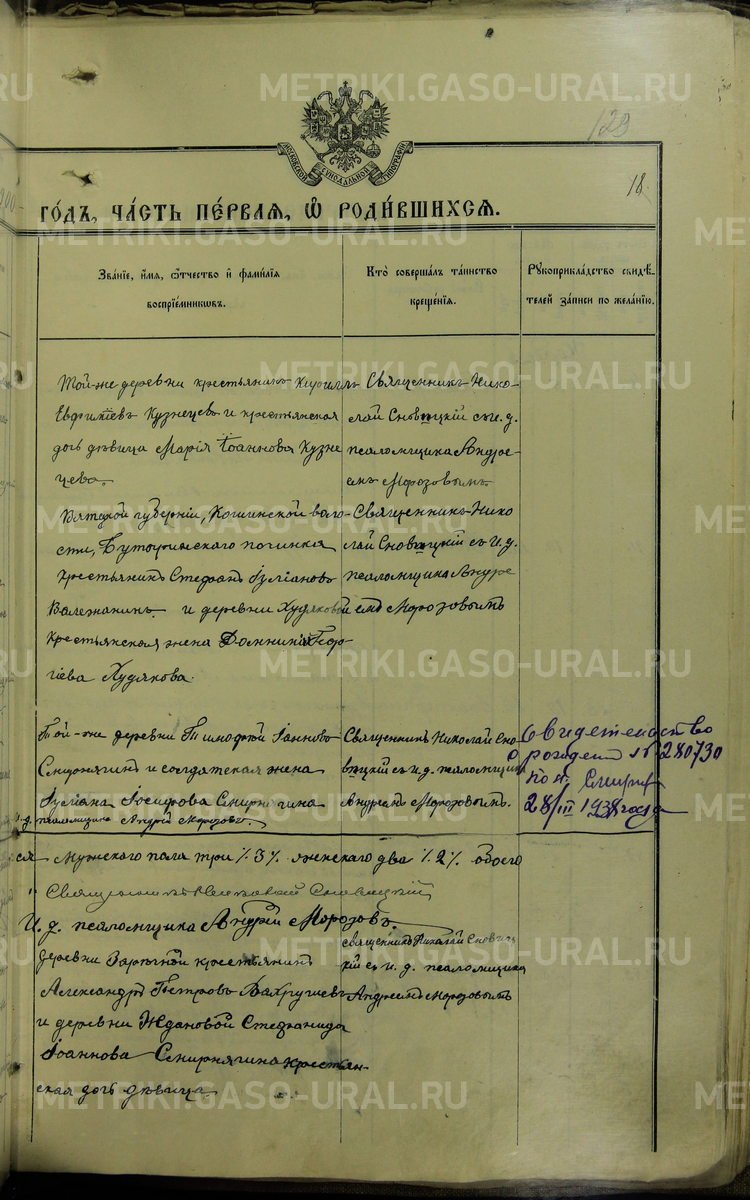 METRIKI.GASO-URAL.RU
128
18
МОСКОВСКОЙ СѴНОДАЛЬНОЙ ТИПОГРАФІИ
ГО́ДЪ, ЧА́СТЬ ПЕ́РВАЯ, Ѡ҆ РОДИ́ВШИХСЯ.
Зва́нїе, и҆́мя, ѻ҆́тчество и҆ фами́лїя
воспрїе́мниковъ.
Кто̀ соверша́лъ та́инство
креще́нїя.
Рꙋкоприкла́дство свидѣ́-
телей за́писи по жела́нїю.
Той-же деревни крестьянинъ Кириллъ
Евфиміевъ Кузнецевъ и крестьянская
дочь дѣвица Марія Іоаннова Кузне
цева.
Священникъ Нико-
лай Сновицкій съ и. д.
псаломщика Андре-
емъ Морозовымъ
Вятской губерніи, волос-
сти, починка
крестьянинъ Стефанъ Іуліановъ
Валежанинъ и деревни Худяковой
крестьянская жена Домникія Геор
гіева Худякова.
Священникъ Нико
лай Сновицкій съ и. д.
псаломщика Андре
емъ Морозовымъ
Той-же деревни Тимофей Іанновъ
Смирнягинъ и солдатская жена
Іуліана Іосифова Смирнягина
и. д. псаломщика Андрей Морозовъ.
Священникъ Николай Сно
вицкій съ и. д. псаломщика
Андреемъ Морозовымъ.
Свидетельство
о рожден № 280730
28/III 1938 года
ся Мужскаго пола три /.3/. женскаго два /.2/. обоего
Священникъ Николай Сновицкій
И. д. псаломщика Андрей Морозовъ.
деревни Заречной крестьянинъ
Александръ Петровъ Вахрушевъ
и деревни Ждановой Стефанида
Іоаннова Смирнягина крестьян-
ская дочь дѣвица.
священникъ Николай Сновиц
кій съ и. д. псаломщика
Андреемъ Морозовымъ